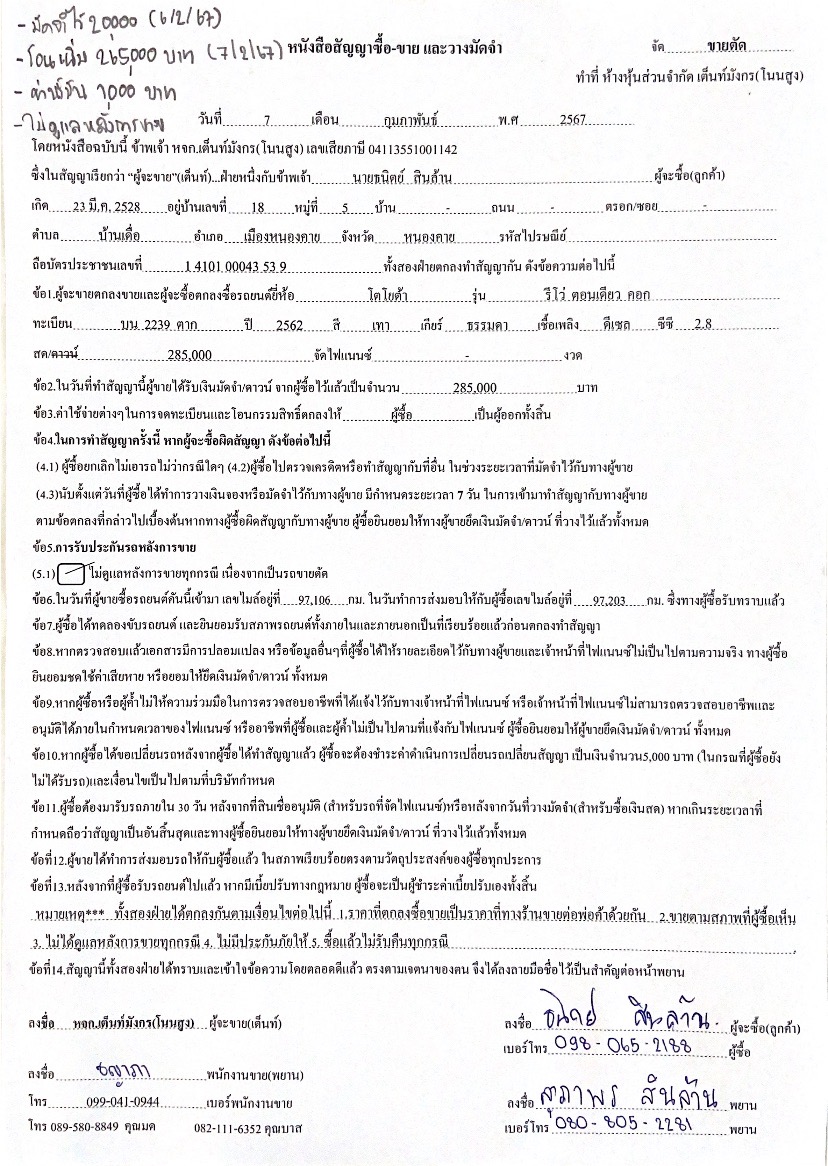 - มัดจำไว้ 20000 (6/2/67)
- โอนเพิ่ม 265,000 บาท (7/2/67)
- ค่าน้ำมัน 1000 บาท
- ไม่ดูแลหลังการขาย
หนังสือสัญญาซื้อ-ขาย และวางมัดจำ
จัด ขายตัด
ทำที่ ห้างหุ้นส่วนจำกัด เต็นท์มังกร(โนนสูง)
วันที่ 7 เดือน กุมภาพันธ์ พ.ศ 2567
โดยหนังสือฉบับนี้ ข้าพเจ้า หจก.เต็นท์มังกร(โนนสูง) เลขเสียภาษี 04113551001142
ซึ่งในสัญญาเรียกว่า “ผู้จะขาย”(เต็นท์)...ฝ่ายหนึ่งกับข้าพเจ้า นายธนิตย์ สินล้าน ผู้จะซื้อ(ลูกค้า)
เกิด 23 มี.ค. 2528 อยู่บ้านเลขที่ 18 หมู่ที่ 5 บ้าน - ถนน - ตรอก/ซอย -
ตำบล บ้านเดื่อ อำเภอ เมืองหนองคาย จังหวัด หนองคาย รหัสไปรษณีย์
ถือบัตรประชาชนเลขที่ 1 4101 00043 53 9 ทั้งสองฝ่ายตกลงทำสัญญากัน ดังข้อความต่อไปนี้
ข้อ1.ผู้จะขายตกลงขายและผู้จะซื้อตกลงซื้อรถยนต์ยี่ห้อ โตโยต้า รุ่น รีโว่ ตอนเดียว คอก
ทะเบียน บน 2239 ตาก ปี 2562 สี เทา เกียร์ ธรรมดา เชื้อเพลิง ดีเซล ซีซี 2.8
สด/ดาวน์ 285,000 จัดไฟแนนซ์ - งวด
ข้อ2.ในวันที่ทำสัญญานี้ผู้ขายได้รับเงินมัดจำ/ดาวน์ จากผู้ซื้อไว้แล้วเป็นจำนวน 285,000 บาท
ข้อ3.ค่าใช้จ่ายต่างๆในการจดทะเบียนและโอนกรรมสิทธิ์ตกลงให้ ผู้ซื้อ เป็นผู้ออกทั้งสิ้น
ข้อ4.ในการทำสัญญาครั้งนี้ หากผู้จะซื้อผิดสัญญา ดังข้อต่อไปนี้
(4.1) ผู้ซื้อยกเลิกไม่เอารถไม่ว่ากรณีใดๆ (4.2)ผู้ซื้อไปตรวจเครดิตหรือทำสัญญากับที่อื่น ในช่วงระยะเวลาที่มัดจำไว้กับทางผู้ขาย
(4.3)นับตั้งแต่วันที่ผู้ซื้อได้ทำการวางเงินจองหรือมัดจำไว้กับทางผู้ขาย มีกำหนดระยะเวลา 7 วัน ในการเข้ามาทำสัญญากับทางผู้ขาย
ตามข้อตกลงที่กล่าวไปเบื้องต้นหากทางผู้ซื้อผิดสัญญากับทางผู้ขาย ผู้ซื้อยินยอมให้ทางผู้ขายยึดเงินมัดจำ/ดาวน์ ที่วางไว้แล้วทั้งหมด
ข้อ5.การรับประกันรถหลังการขาย
(5.1) ไม่ดูแลหลังการขายทุกกรณี เนื่องจากเป็นรถขายตัด
ข้อ6.ในวันที่ผู้ขายซื้อรถยนต์คันนี้เข้ามา เลขไมล์อยู่ที่ 97,106 กม. ในวันทำการส่งมอบให้กับผู้ซื้อเลขไมล์อยู่ที่ 97,203 กม. ซึ่งทางผู้ซื้อรับทราบแล้ว
ข้อ7.ผู้ซื้อได้ทดลองขับรถยนต์ และยินยอมรับสภาพรถยนต์ทั้งภายในและภายนอกเป็นที่เรียบร้อยแล้วก่อนตกลงทำสัญญา
ข้อ8.หากตรวจสอบแล้วเอกสารมีการปลอมแปลง หรือข้อมูลอื่นๆที่ผู้ซื้อได้ให้รายละเอียดไว้กับทางผู้ขายและเจ้าหน้าที่ไฟแนนซ์ไม่เป็นไปตามความจริง ทางผู้ซื้อ
ยินยอมชดใช้ค่าเสียหาย หรือยอมให้ยึดเงินมัดจำ/ดาวน์ ทั้งหมด
ข้อ9.หากผู้ซื้อหรือผู้ค้ำไม่ให้ความร่วมมือในการตรวจสอบอาชีพที่ได้แจ้งไว้กับทางเจ้าหน้าที่ไฟแนนซ์ หรือเจ้าหน้าที่ไฟแนนซ์ไม่สามารถตรวจสอบอาชีพและ
อนุมัติได้ภายในกำหนดเวลาของไฟแนนซ์ หรืออาชีพที่ผู้ซื้อและผู้ค้ำไม่เป็นไปตามที่แจ้งกับไฟแนนซ์ ผู้ซื้อยินยอมให้ผู้ขายยึดเงินมัดจำ/ดาวน์ ทั้งหมด
ข้อ10.หากผู้ซื้อได้ขอเปลี่ยนรถหลังจากผู้ซื้อได้ทำสัญญาแล้ว ผู้ซื้อจะต้องชำระค่าดำเนินการเปลี่ยนรถเปลี่ยนสัญญา เป็นเงินจำนวน5,000 บาท (ในกรณที่ผู้ซื้อยัง
ไม่ได้รับรถ)และเงื่อนไขเป็นไปตามที่บริษัทกำหนด
ข้อ11.ผู้ซื้อต้องมารับรถภายใน 30 วัน หลังจากที่สินเชื่ออนุมัติ (สำหรับรถที่จัดไฟแนนซ์)หรือหลังจากวันที่วางมัดจำ(สำหรับซื้อเงินสด) หากเกินระยะเวลาที่
กำหนดถือว่าสัญญาเป็นอันสิ้นสุดและทางผู้ซื้อยินยอมให้ทางผู้ขายยึดเงินมัดจำ/ดาวน์ ที่วางไว้แล้วทั้งหมด
ข้อที่12.ผู้ขายได้ทำการส่งมอบรถให้กับผู้ซื้อแล้ว ในสภาพเรียบร้อยตรงตามวัตถุประสงค์ของผู้ซื้อทุกประการ
ข้อที่13.หลังจากที่ผู้ซื้อรับรถยนต์ไปแล้ว หากมีเบี้ยปรับทางกฎหมาย ผู้ซื้อจะเป็นผู้ชำระค่าเบี้ยปรับเองทั้งสิ้น
หมายเหตุ*** ทั้งสองฝ่ายได้ตกลงกันตามเงื่อนไขต่อไปนี้ 1.ราคาที่ตกลงซื้อขายเป็นราคาที่ทางร้านขายต่อพ่อค้าด้วยกัน 2.ขายตามสภาพที่ผู้ซื้อเห็น
3. ไม่ได้ดูแลหลังการขายทุกกรณี 4. ไม่มีประกันภัยให้ 5. ซื้อแล้วไม่รับคืนทุกกรณี
ข้อที่14.สัญญานี้ทั้งสองฝ่ายได้ทราบและเข้าใจข้อความโดยตลอดดีแล้ว ตรงตามเจตนาของตน จึงได้ลงลายมือชื่อไว้เป็นสำคัญต่อหน้าพยาน
ลงชื่อ หจก.เต็นท์มังกร(โนนสูง) ผู้จะขาย(เต็นท์)
ลงชื่อ ธนิตย์ สินล้าน ผู้จะซื้อ(ลูกค้า)
เบอร์โทร 098-065-2188 ผู้ซื้อ
ลงชื่อ ชญาภา พนักงานขาย(พยาน)
โทร 099-041-0944 เบอร์พนักงานขาย
ลงชื่อ สุภาพร สินล้าน พยาน
โทร 089-580-8849 คุณมด 082-111-6352 คุณบาส
เบอร์โทร 080-805-2281 พยาน